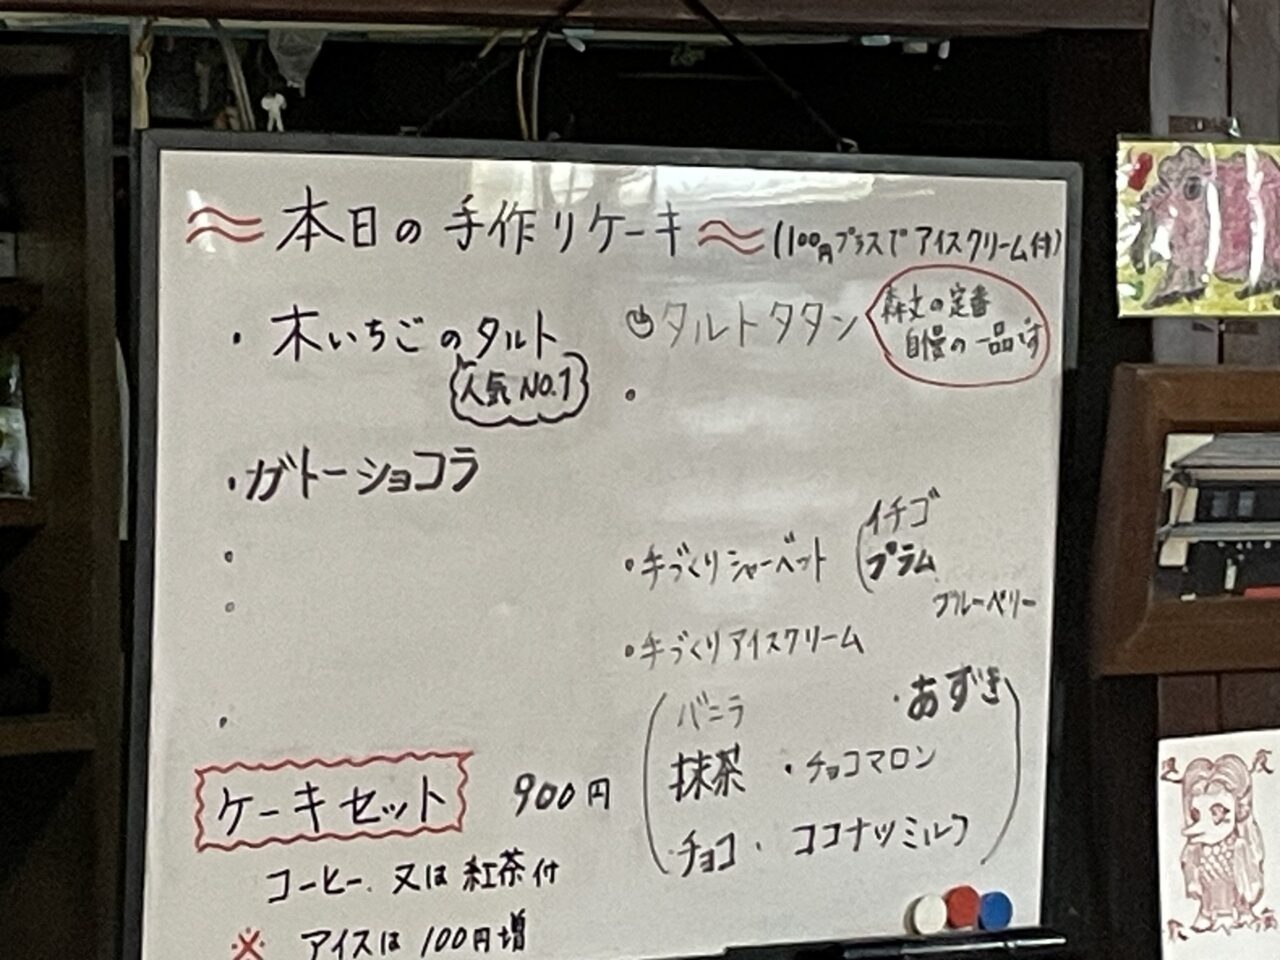 本日の手作りケーキ (100円プラスでアイスクリーム付)
・木いちごのタルト
人気NO.1
・ガトーショコラ
タルトタタン
森丈の定番
自慢の一品です
・手づくりシャーベット
イチゴ
プラム
ブルーベリー
・手づくりアイスクリーム
バニラ ・あずき
抹茶 ・チョコマロン
・チョコ・ココナツミルク
ケーキセット 900円
コーヒー、又は紅茶付
※ アイスは100円増